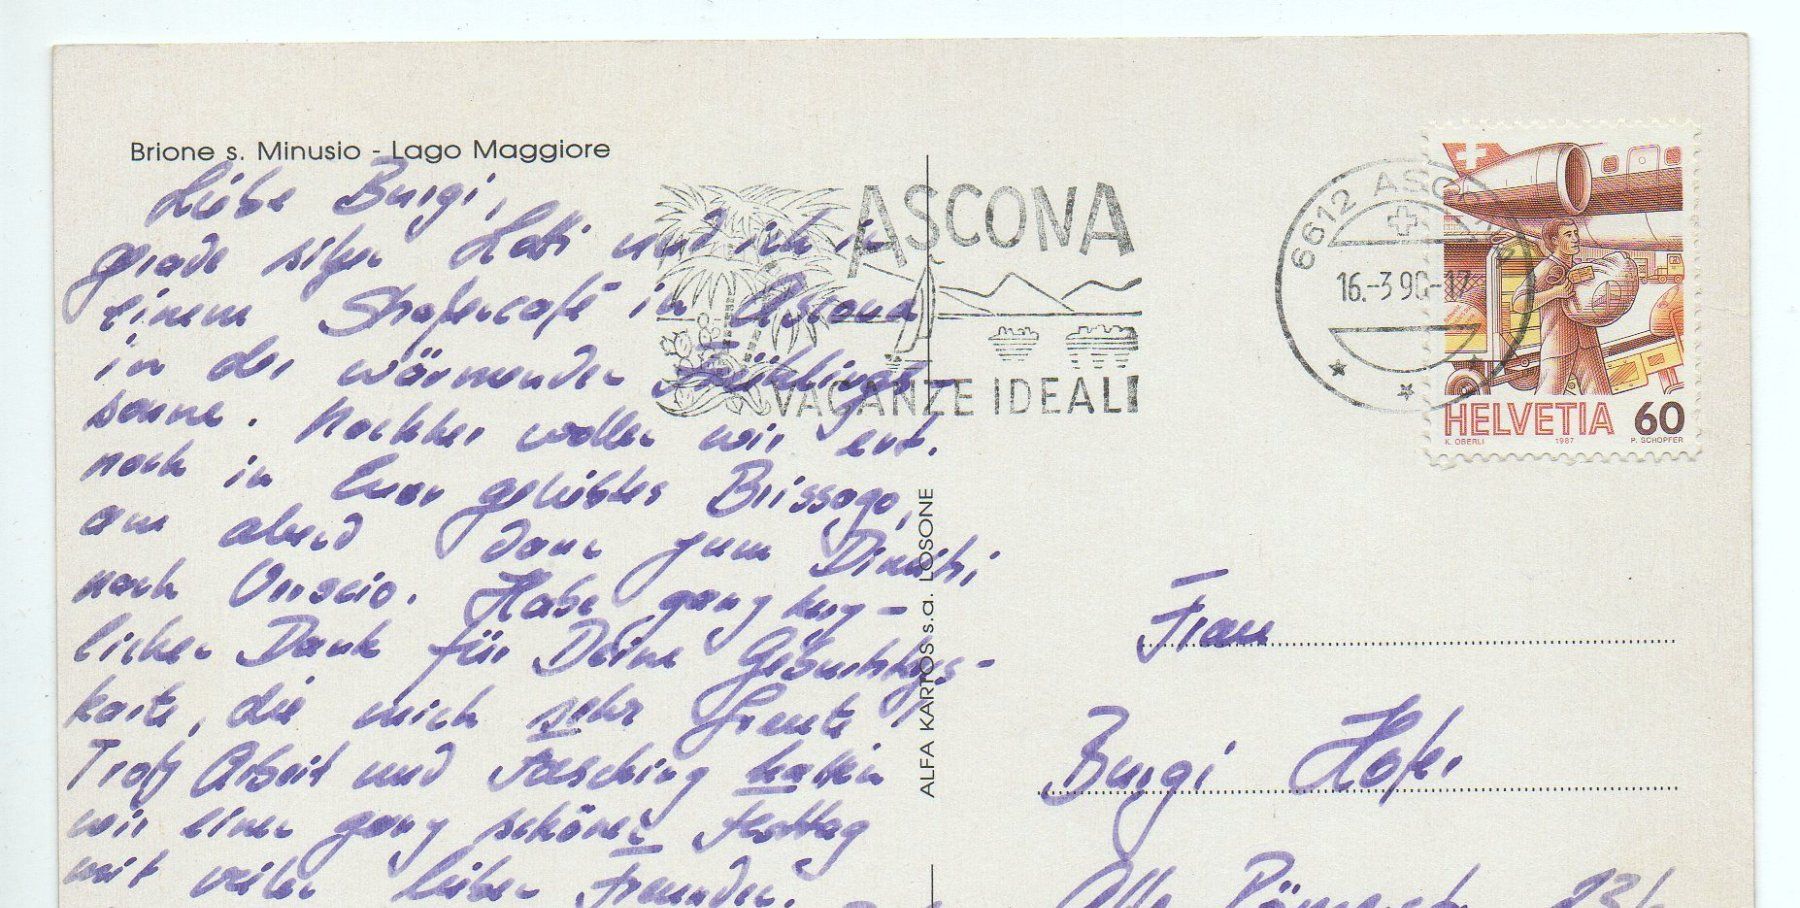 Brione s. Minusio - Lago Maggiore
Liebe Burgi,
grade sitzen Lotti und ich in
einem Straßencafé in Ascona
in der wärmenden Frühlings-
sonne. Nachher wollen wir evt.
noch in Euer geliebtes Brissago,
am abend dann zum Dimitri
nach Verscio. Habe ganz herz-
lichen Dank für Deine Geburtstags-
karte, die mich sehr freute
Trotz Arbeit und Fasching hatten
wir einen ganz schönen Festtag
mit vielen lieben Freunden.
ASCONA
VACANZE IDEALI
6612 ASCONA
16.-3 90-17
HELVETIA 60
K. OBERLI 1987 P. SCHOPFER
ALFA KARTOS s.a. LOSONE
Frau
Burgi Hofer
Alte 23b